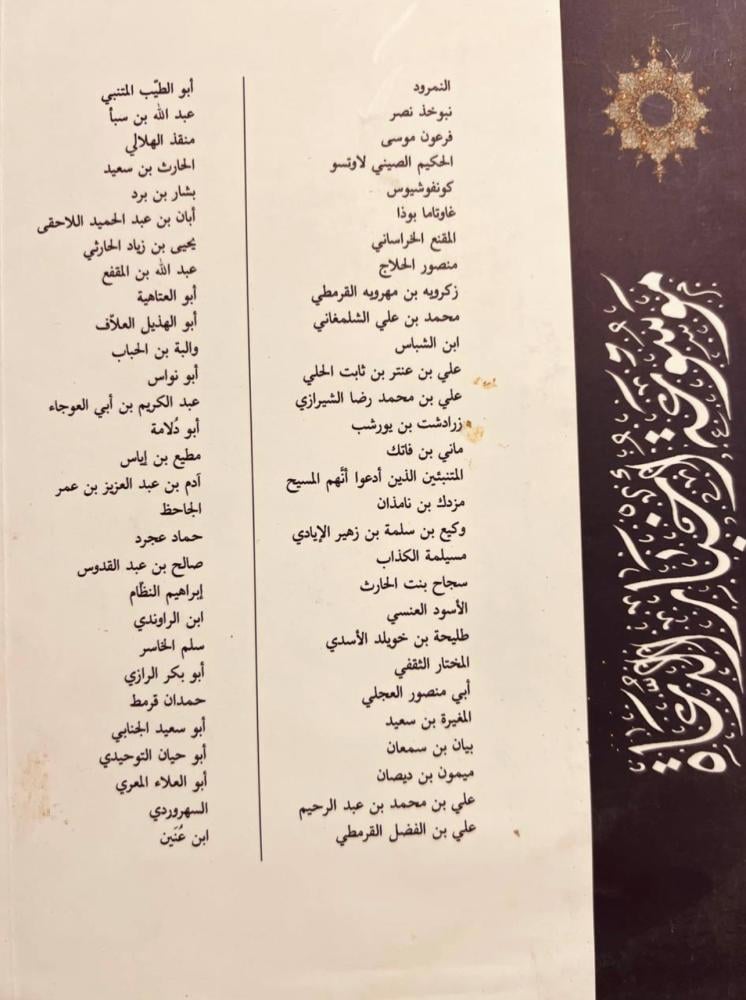 النمرود
نبوخذ نصر
فرعون موسى
الحكيم الصيني لاوتسو
كونفوشيوس
غاوتاما بوذا
المقنع الخراساني
منصور الحلاج
زكرويه بن مهرويه القرمطي
محمد بن علي الشلمغاني
ابن الشباس
علي بن عنتر بن ثابت الحلي
علي بن محمد رضا الشيرازي
زرادشت بن يورشب
ماني بن فاتك
المتنبئين الذين أدعوا أنّهم المسيح
مزدك بن نامذان
وكيع بن سلمة بن زهير الإيادي
مسيلمة الكذاب
سجاح بنت الحارث
الأسود العنسي
طليحة بن خويلد الأسدي
المختار الثقفي
أبي منصور العجلي
المغيرة بن سعيد
بيان بن سمعان
ميمون بن ديصان
علي بن محمد بن عبد الرحيم
علي بن الفضل القرمطي
أبو الطيّب المتنبي
عبد الله بن سبأ
منقذ الهلالي
الحارث بن سعيد
بشار بن برد
أبان بن عبد الحميد اللاحقى
يحيى بن زياد الحارثي
عبد الله بن المقفع
أبو العتاهية
أبو الهذيل العلاّف
والبة بن الحباب
أبو نواس
عبد الكريم بن أبي العوجاء
أبو دُلامة
مطيع بن إياس
آدم بن عبد العزيز بن عمر
الجاحظ
حماد عجرد
صالح بن عبد القدوس
إبراهيم النظّام
ابن الراوندي
سلم الخاسر
أبو بكر الرازي
حمدان قرمط
أبو سعيد الجنابي
أبو حيان التوحيدي
أبو العلاء المعري
السهروردي
ابن عُنَين
موسوعة أخبار الدعاة